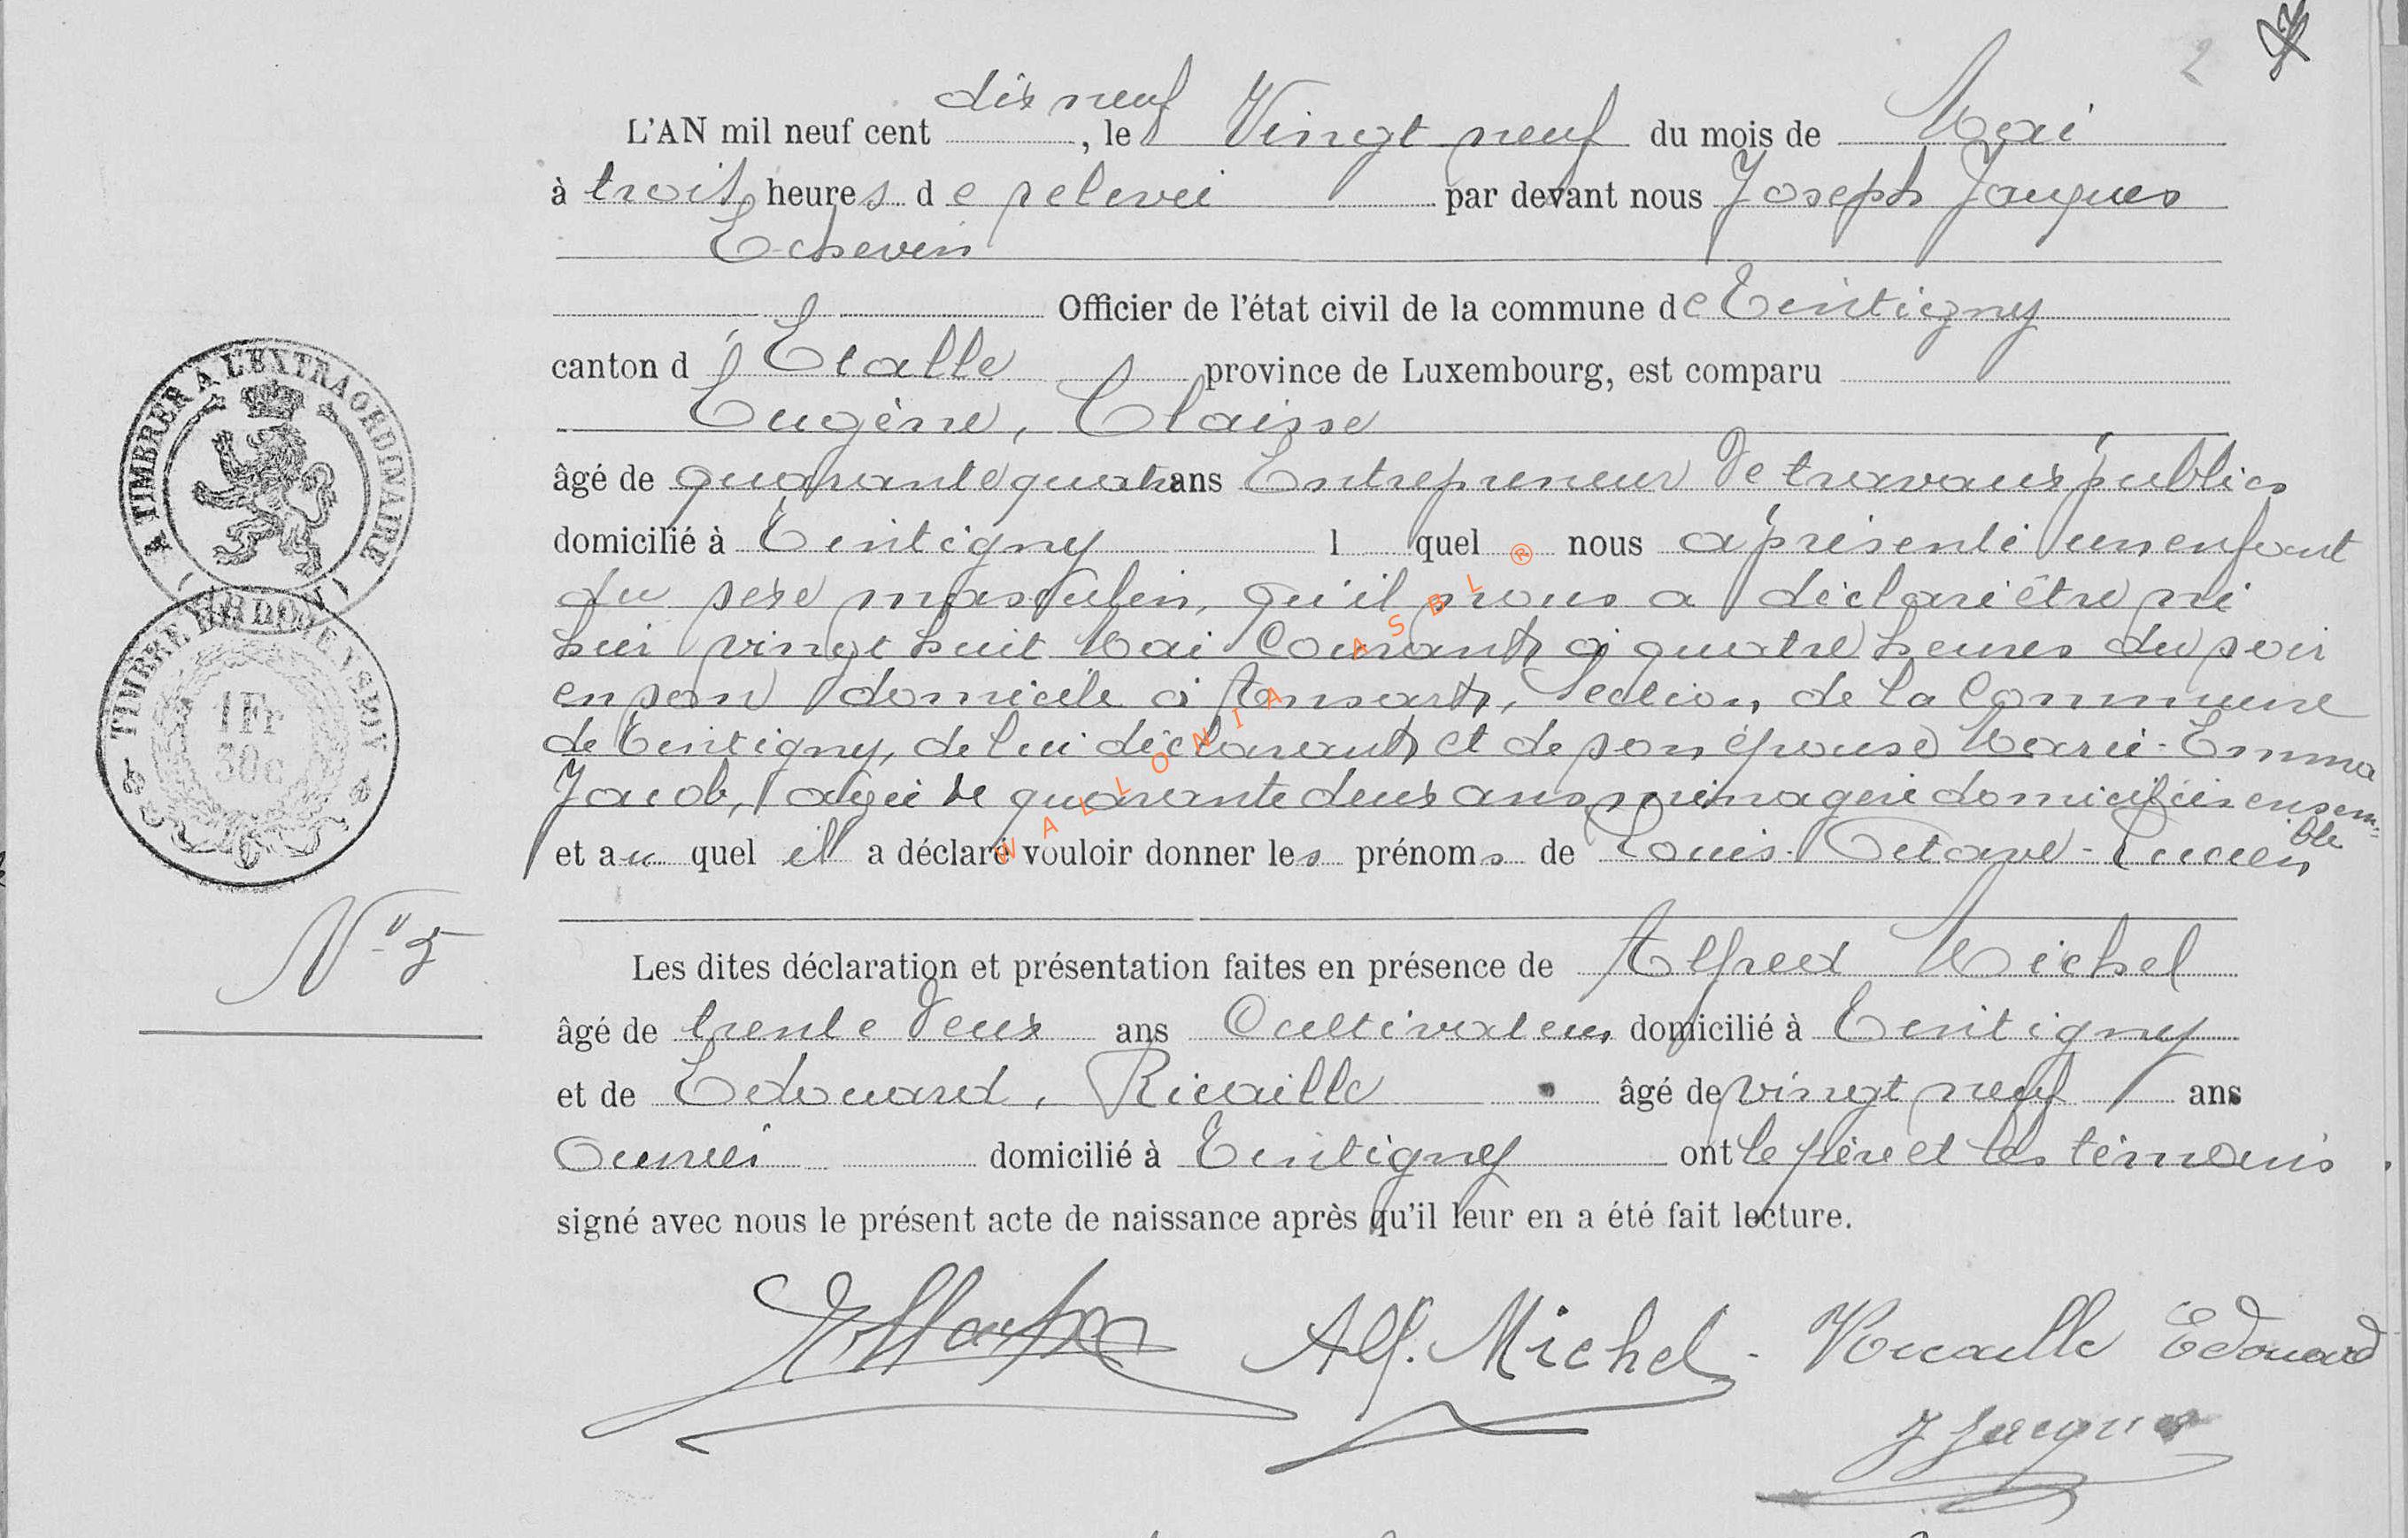 2
dix neuf
L'AN mil neuf cent , le Vingt neuf du mois de Mai
à trois heures de relevée par devant nous Joseph Jacques
Echevin
Officier de l'état civil de la commune de Tintigny
canton d'Etalle province de Luxembourg, est comparu
Eugène, Claisse
âgé de quarante quatre ans Entrepreneur de travaux publics
domicilié à Tintigny l quel nous a présenté un enfant
du sexe masculin, qu'il nous a déclaré être né
hier vingt huit Mai Courant à quatre heures du soir
en son domicile à Ansart, Section de la Commune
de Tintigny, de lui déclarant et de son épouse Marie-Emma
Jacob, âgée de quarante deux ans ménagère domiciliés ensem-
ble
et au quel il a déclaré vouloir donner les prénoms de Louis-Octave-Lucien
Les dites déclaration et présentation faites en présence de Alfred Michel
âgé de trente deux ans Cultivateur domicilié à Tintigny
et de Edouard, Ricaille âgé de vingt neuf ans
Ouvrier domicilié à Tintigny ont le père et les témoins
signé avec nous le présent acte de naissance après qu'il leur en a été fait lecture.
Alf. Michel - Ricaille Edouard
J Jacques
A TIMBRER A L'EXTRAORDINAIRE
TIMBRE DIMENSION
1 Fr
30c
N° 5
WALLONIA ASBL ®